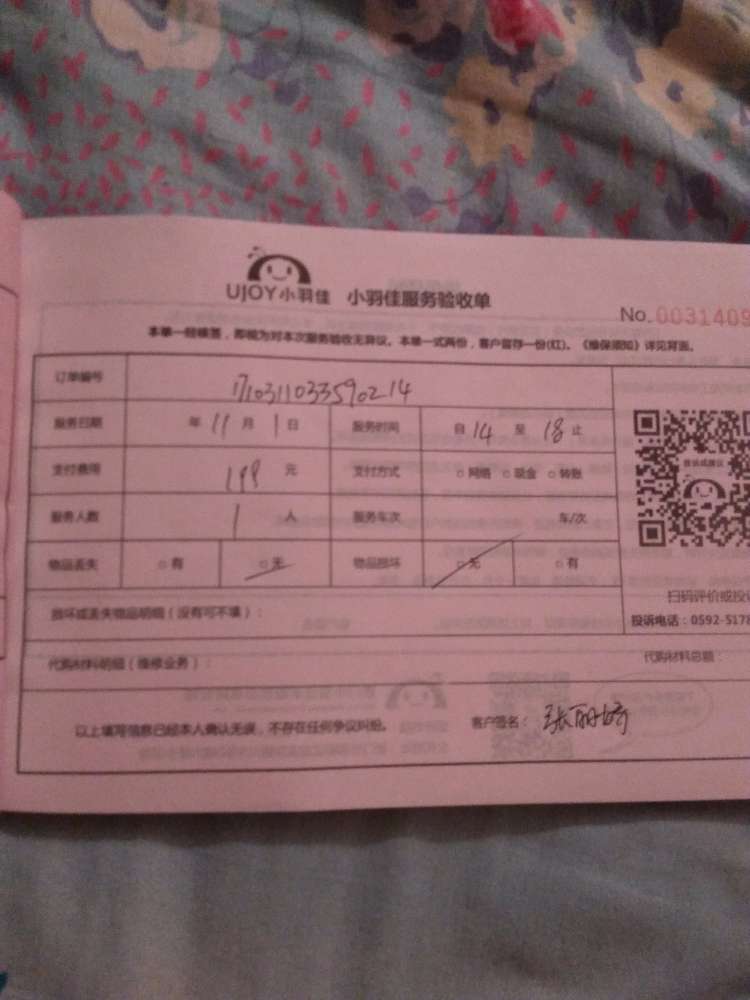 UJOY小羽佳 小羽佳服务验收单
No.0031409
本单一经接签，即视为对本次服务验收无异议。本单一式两份，客户留存一份(红)。《维保须知》详见背面。
订单编号 1710311033590214
服务日期 年 11 月 1 日 服务时间 自 14 至 18 止
支付费用 199 元 支付方式 □网络 □现金 □转账
服务人数 1 人 服务车次 车/次
物品丢失 □有 □无 物品损坏 □无 □有
扫码评价或投
投诉电话：0592-5178
损坏或丢失物品明细（没有可不填）：
代购材料明细（维修业务）： 代购材料总额：
以上填写信息已经本人确认无误，不存在任何争议纠纷。 客户签名：张丽婷